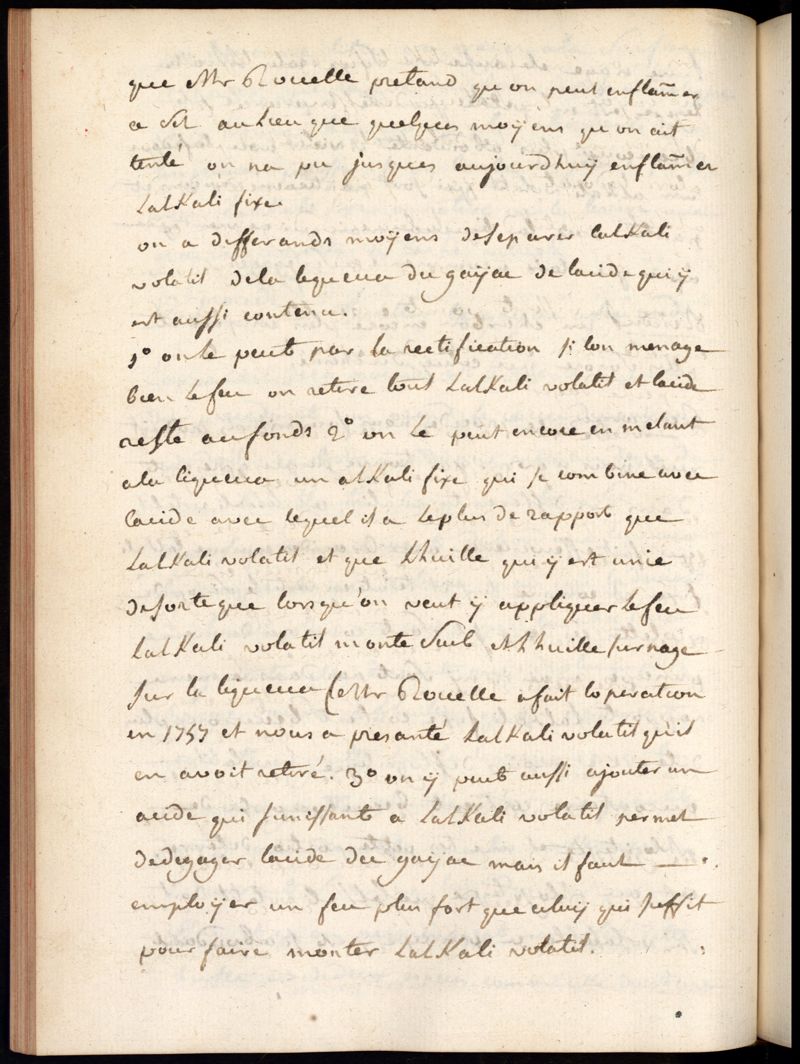 que Mr Rouelle pretand qu'on peut enflam̄er
a dit au lieu que quelques moÿens qu'on ait
tenté on na pu jusques aujourdhuÿ enflam̄er
LalKali fixe.
on a differands moÿens deseparer lalKali
volatil dela liqueur du gaÿac de lacide qui ÿ
est aussi contenu.
1º on le peut par la rectification si lon menage
bien le feu on retire tout LalKali volatil et lacide
reste au fonds 2º on le peut encore en melant
ala liqueur un alKali fixe qui se combine avec
lacide avec lequel il a leplus de rapport que
LalKali volatil et que Lhuille qui ÿ est unie
desorteque lorsqu'on veut ÿ appliquer le feu
LalKali volatil monte seul et Lhuille surnage
sur la liqueur (Mr Rouelle a fait loperation
en 1757 et nous a presanté LalKali volatil quil
en avoit retiré. 3º on ÿ peut aussi ajouter un
acide qui sunissant a LalKali volatil permet
dedegager lacide du gaÿac mais il faut —
emploÿer un feu plus fort que celuÿ qui suffit
pour faire monter LalKali volatil.